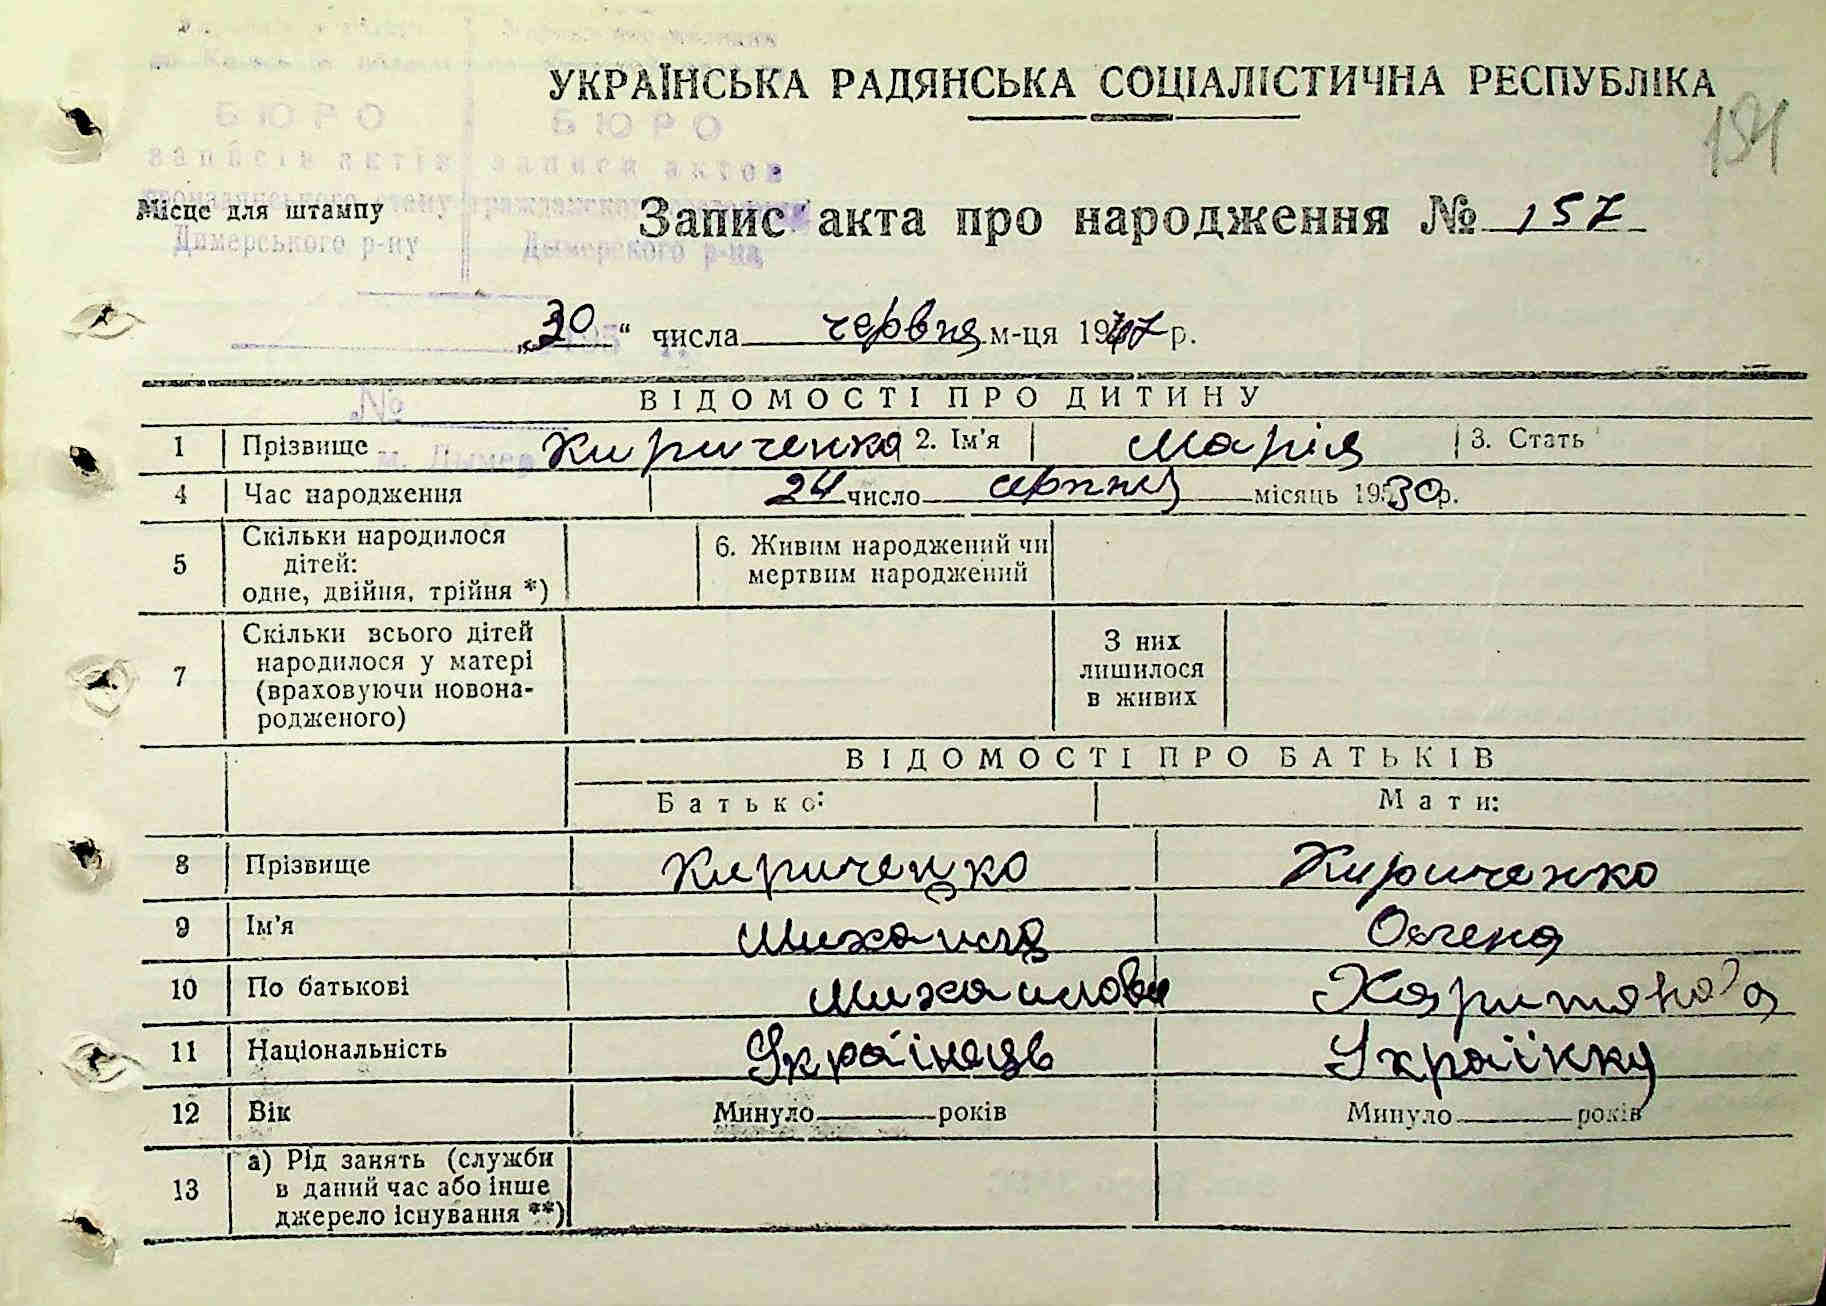 УКРАЇНСЬКА РАДЯНСЬКА СОЦІАЛІСТИЧНА РЕСПУБЛІКА
БЮРО БЮРО
записів актів записи актов
Місце для штампу
Запис акта про народження № 157
Димерського р-ну Дымерского р-на
„30“ числа червня м-ця 1947 р.
№
ВІДОМОСТІ ПРО ДИТИНУ
1 Прізвище Кириченко 2. Ім'я Марія 3. Стать
м. Дымер
4 Час народження 24 число серпня місяць 1930 р.
5 Скільки народилося дітей: одне, двійня, трійня *)
6. Живим народжений чи мертвим народжений
7 Скільки всього дітей народилося у матері (враховуючи новона-родженого)
З них лишилося в живих
ВІДОМОСТІ ПРО БАТЬКІВ
Батько: Мати:
8 Прізвище Кириченко Кириченко
9 Ім'я Михаила Олена
10 По батькові Михаилови Харитонова
11 Національність Українець Українку
12 Вік Минуло років Минуло років
13 а) Рід занять (служби в даний час або інше джерело існування **)